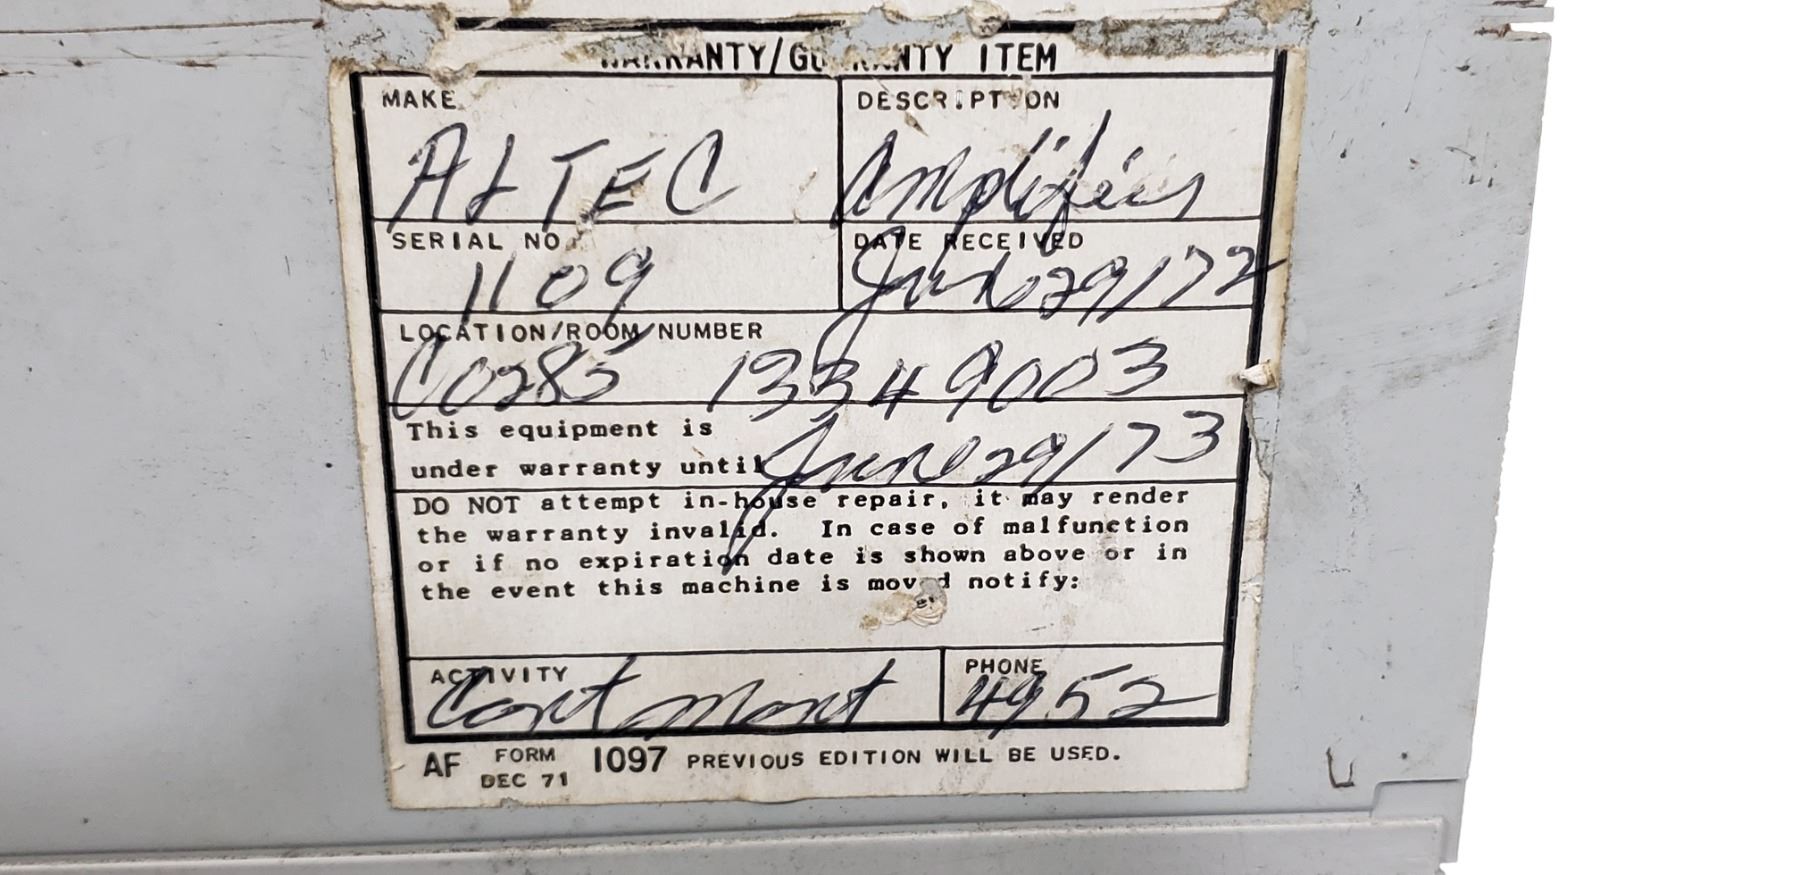 WARRANTY/GUARANTY ITEM
MAKE
ALTEC
DESCRIPTION
Amplifier
SERIAL NO.
1109
DATE RECEIVED
June 29/72
LOCATION/ROOM NUMBER
C0285 13349003
This equipment is
under warranty until June 29/73
DO NOT attempt in-house repair, it may render
the warranty invalid. In case of malfunction
or if no expiration date is shown above or in
the event this machine is moved notify:
ACTIVITY
Cont Mont
PHONE
4952
AF FORM DEC 71 1097 PREVIOUS EDITION WILL BE USED.